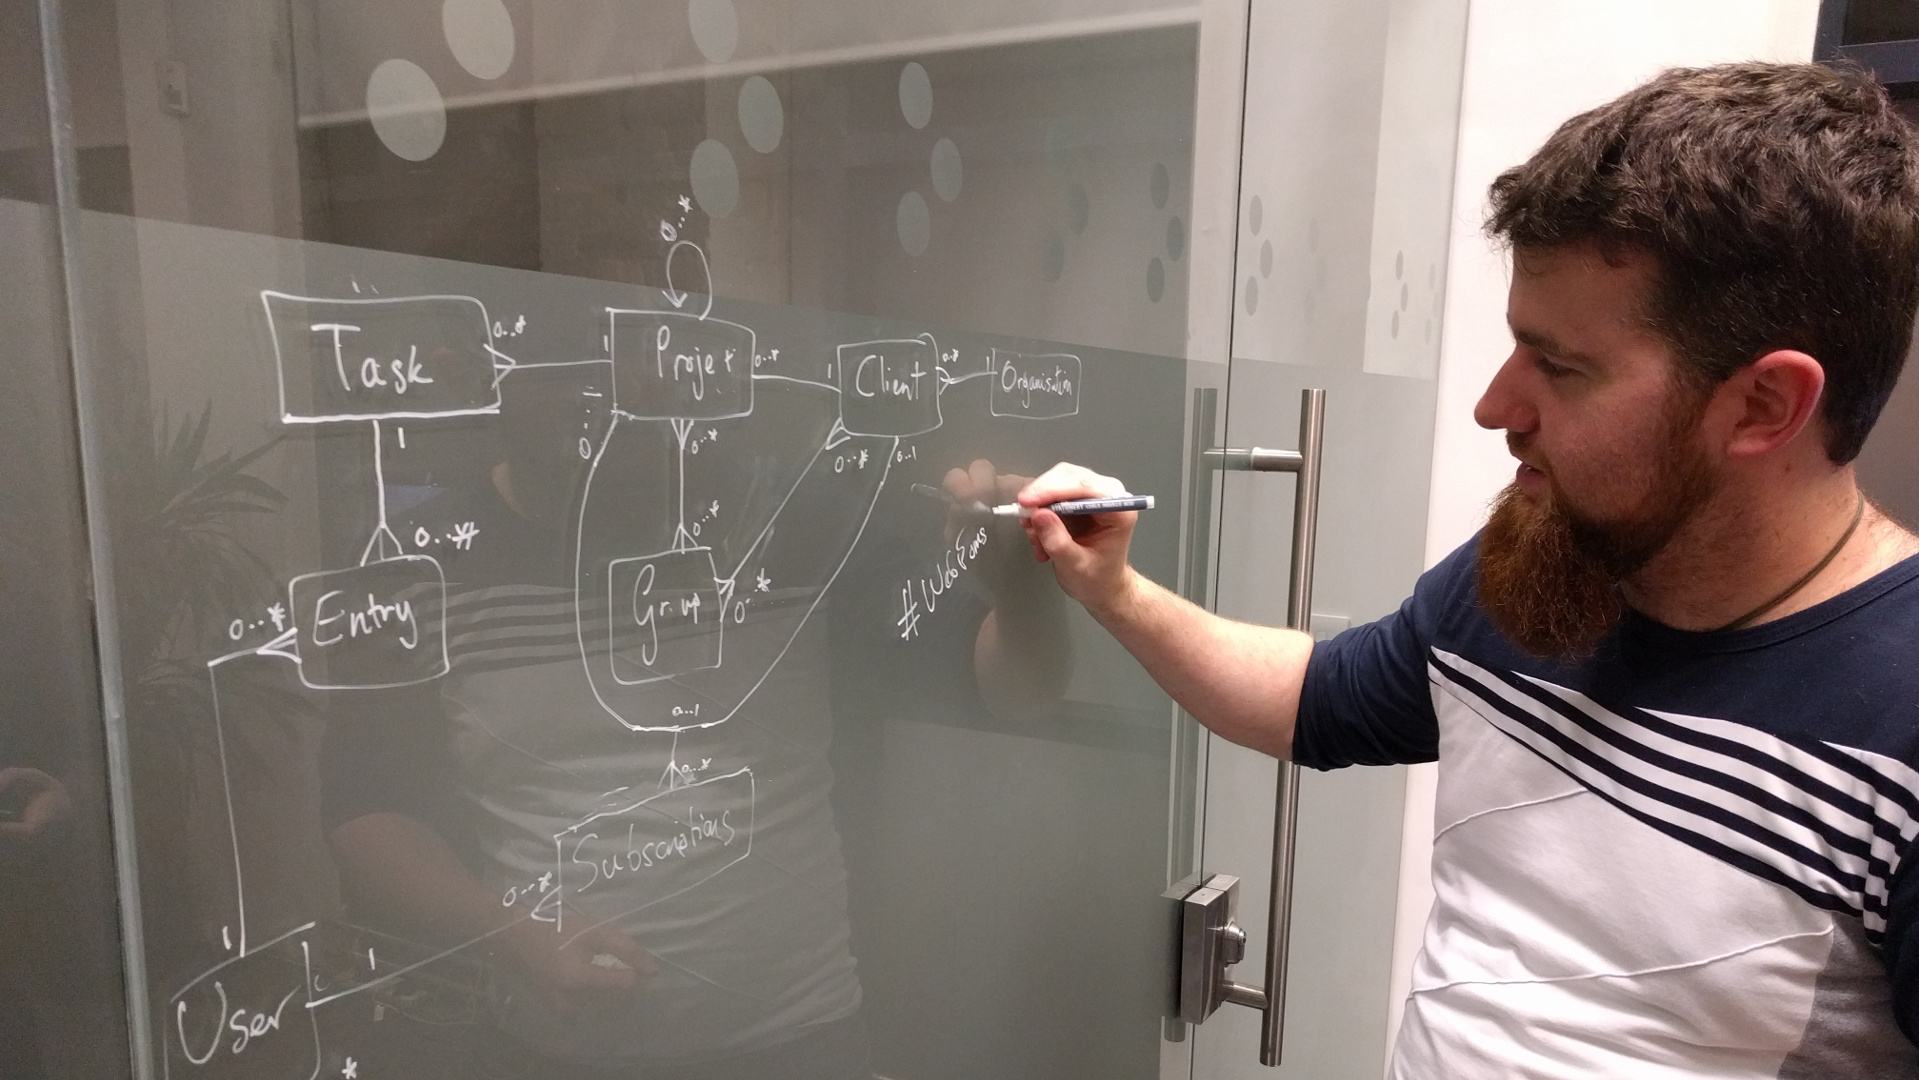 0..*
Task
0..*
1
Project
0..*
1
Client
0..*
1
Organisation
1
0..1
0..*
0..*
0..1
0..*
0..*
Entry
0..*
Group
0..*
#WebForms
0..1
0..*
Subscriptions
0..*
1
1
User
*